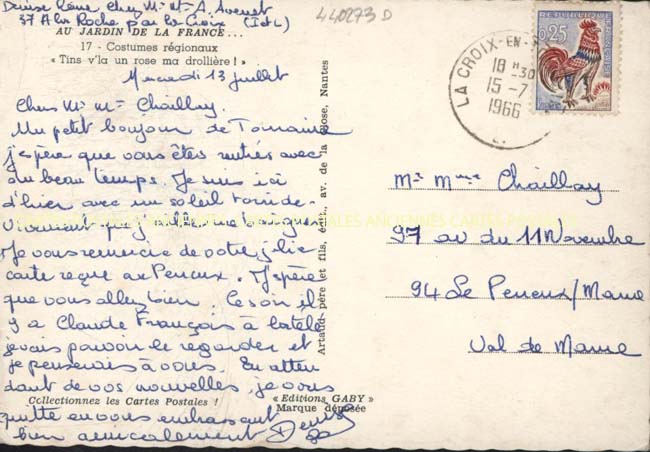 Denise chez Mr et A. Avenet
37 A la Roche par la Croix (I et L)
440273 D
AU JARDIN DE LA FRANCE...
17 - Costumes régionaux
« Tins v'la un rose ma drollière ! »
Mercredi 13 juillet
Chers Mr Mme Chaillay.
Un petit bonjour de Touraine
j'espère que vous êtes rentrés avec
du beau temps. Je suis ici
d'hier avec un soleil
que j'ai
Je vous remercie de votre jolie
carte reçue au Perreux. J'espère
que vous allez bien. Ce soir il
y a Claude François à la télé
je vais pouvoir le regarder et
je penserais à vous. En atten
dant de vos nouvelles, je vous
quitte en vous embrassant
bien amicalement Denise
Collectionnez les Cartes Postales !
« Editions GABY »
Marque déposée
Artaud père et fils, édit., av. de la Nantes
CARTES POSTALES ANCIENNES CARTES POSTALES
LA CROIX-EN-
18 H -30
15-7
1966
REPUBLIQUE FRANÇAISE
0,25
Mr Mme Chaillay
97 av du 11 Novembre
94 Le Perreux/Marne
Val de Marne